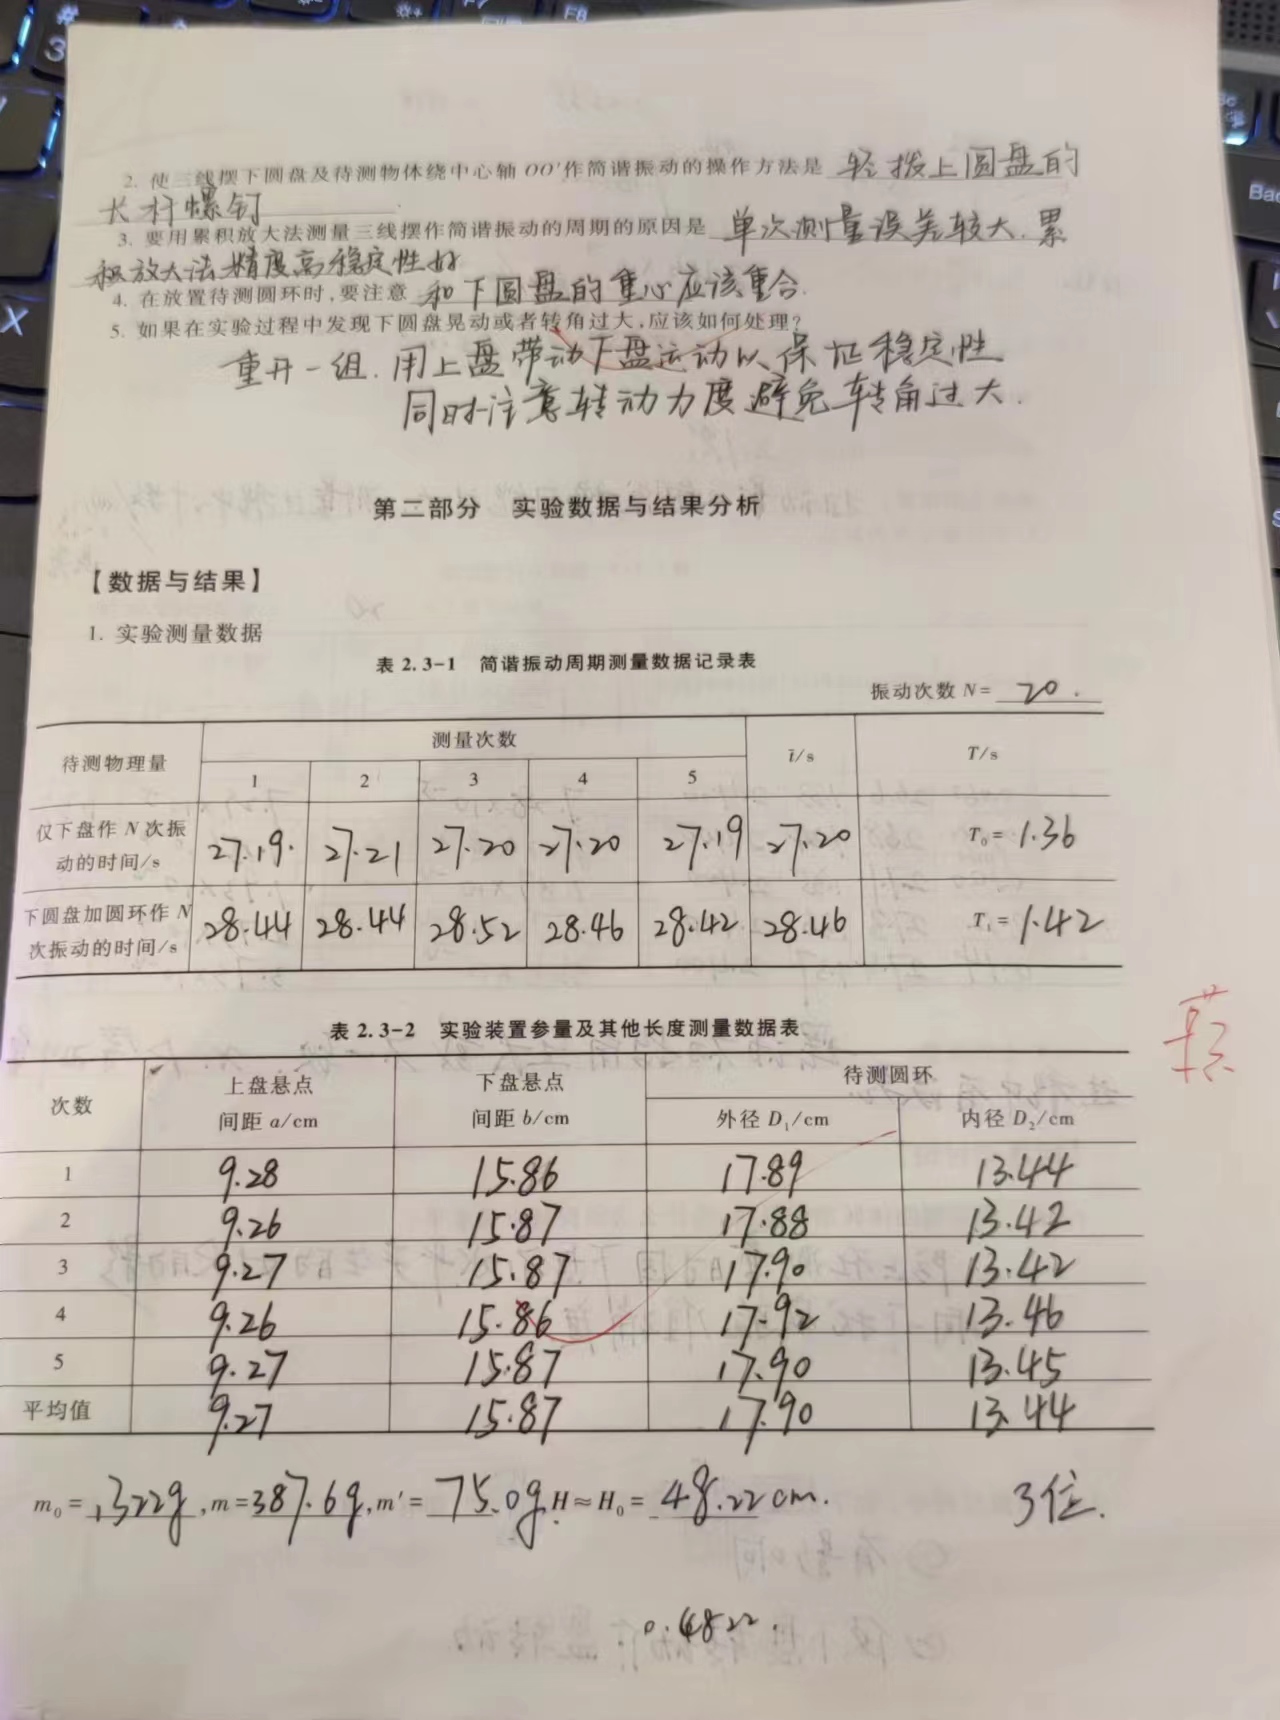 2. 使三线摆下圆盘及待测物体绕中心轴OO′作简谐振动的操作方法是 轻拨上圆盘的
长杆螺钉
3. 要用累积放大法测量三线摆作简谐振动的周期的原因是 单次测量误差较大.累
积放大法精度高稳定性好
4. 在放置待测圆环时,要注意 和下圆盘的重心应该重合.
5. 如果在实验过程中发现下圆盘晃动或者转角过大,应该如何处理?
重开一组.用上盘带动下盘运动以保证稳定性
同时注意转动力度避免转角过大.
第二部分 实验数据与结果分析
【数据与结果】
1. 实验测量数据
表 2.3-1 简谐振动周期测量数据记录表
振动次数 N= 20.
待测物理量 测量次数 t̄/s T/s
1 2 3 4 5
仅下盘作 N 次振动的时间/s 27.19. 27.21 27.20 27.20 27.19 27.20 T₀= 1.36
下圆盘加圆环作 N 次振动的时间/s 28.44 28.44 28.52 28.46 28.42 28.46 T₁= 1.42
表 2.3-2 实验装置参量及其他长度测量数据表
次数 上盘悬点间距 a/cm 下盘悬点间距 b/cm 待测圆环
外径 D₁/cm 内径 D₂/cm
1 9.28 15.86 17.89 13.44
2 9.26 15.87 17.88 13.42
3 9.27 15.87 17.90 13.42
4 9.26 15.86 17.92 13.46
5 9.27 15.87 17.90 13.45
平均值 9.27 15.87 17.90 13.44
m₀= 1322g, m=387.6g, m′= 75.0g, H≈H₀= 48.22cm. 3位.
0.4822.